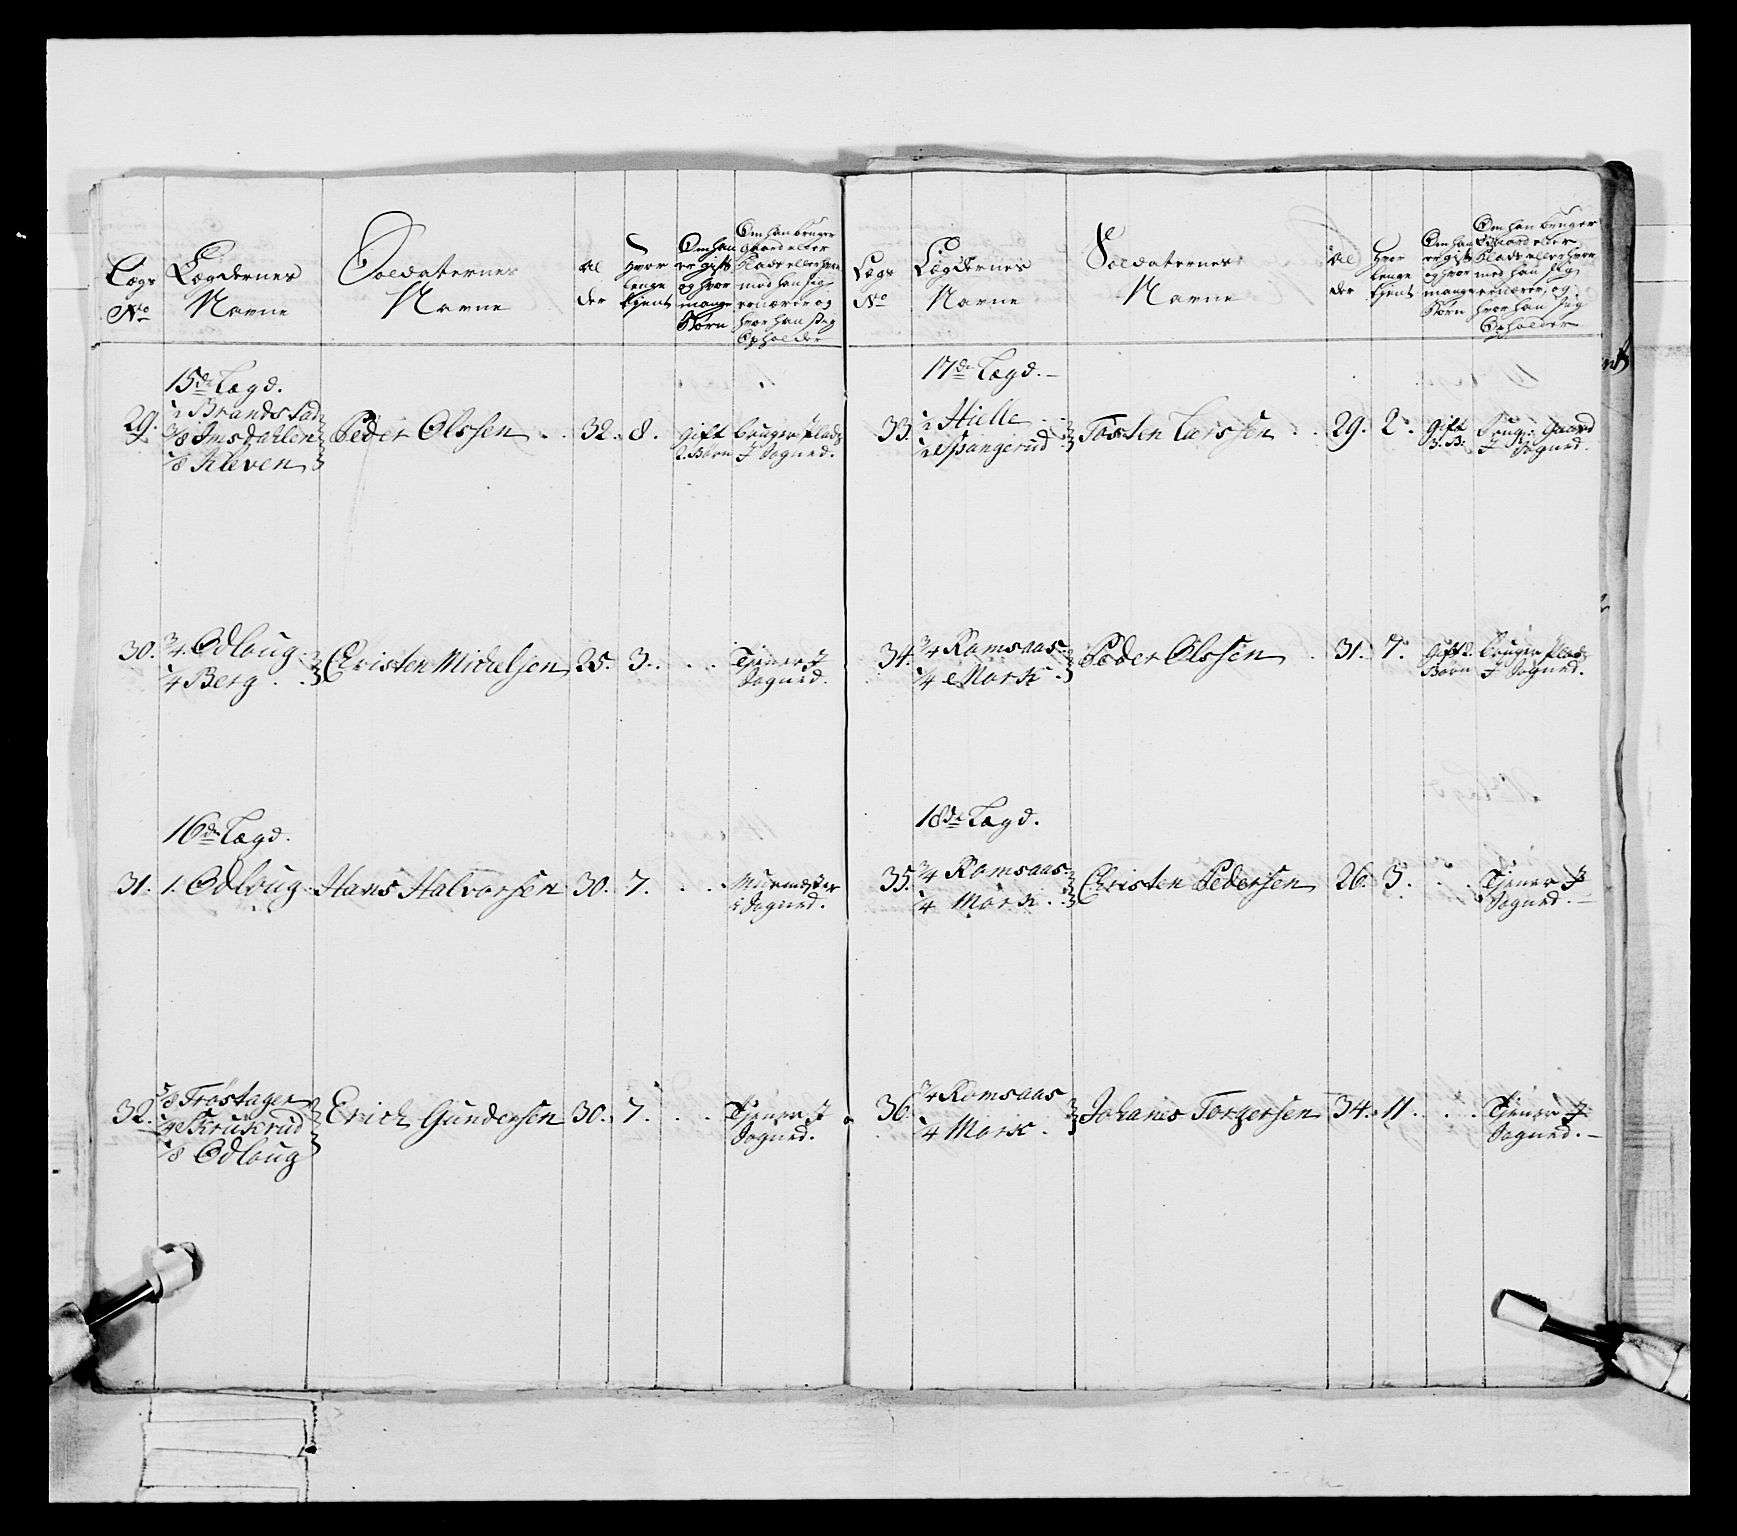 Lægs
No
Lægdernes
Navne
Soldaternes
Navne
Al
der
Hvor
lenge
tjent
Om han
er gift
og hvor
mange
Børn
Om han bruger
Gaard eller
Plads eller hvor
med han sig
ernærer og
hvor han sig
Opholder
15de Lægd.
29. 1/2 Brandstad
3/8 Imsdahlen
1/8 Kleven
Peder Olssen 32. 8. gift
2. Børn
bruger Plads
J Sogned.
30. 3/4 Odloug
1/4 Berg
Christen Michelsen 25. 3. Tjener J
Sogned.
16de Lægd.
31. 1. Odloug Hans Halvorsen 30. 7. Murmester
i Sogned.
32. 5/8 Trøstager
1/4 Skrukrud
1/8 Odloug
Erich Gundersen 30. 7. Tjener J
Sogned.
Lægs
No
Lægdernes
Navne
Soldaternes
Navne
Al
der
Hvor
lenge
tjent
Om han
er gift
og hvor
mange
Børn
Om han bruger
Gaard eller
Plads eller hvor
med han sig
ernærer, og
hvor han sig
Opholder
17de Lægd.
33. 1/2 Hielle
1/2 Spangerud
Tosten Larssen 29. 2. gift
3. B:
Brug: Gaard
J Sogned.
34. 3/4 Ramsaas
1/4 Mork
Peder Olssen 31. 7. Gift 2.
Børn
bruger Plads
J Sogned.
18de Lægd.
35. 3/4 Ramsaas
1/4 Mork
Christen Pedersen 26. 3. Tjener J
Sogned.
36. 3/4 Ramsaas
1/4 Mork
Johanis Torgersen 34. 11. Tjener J
Sogned.